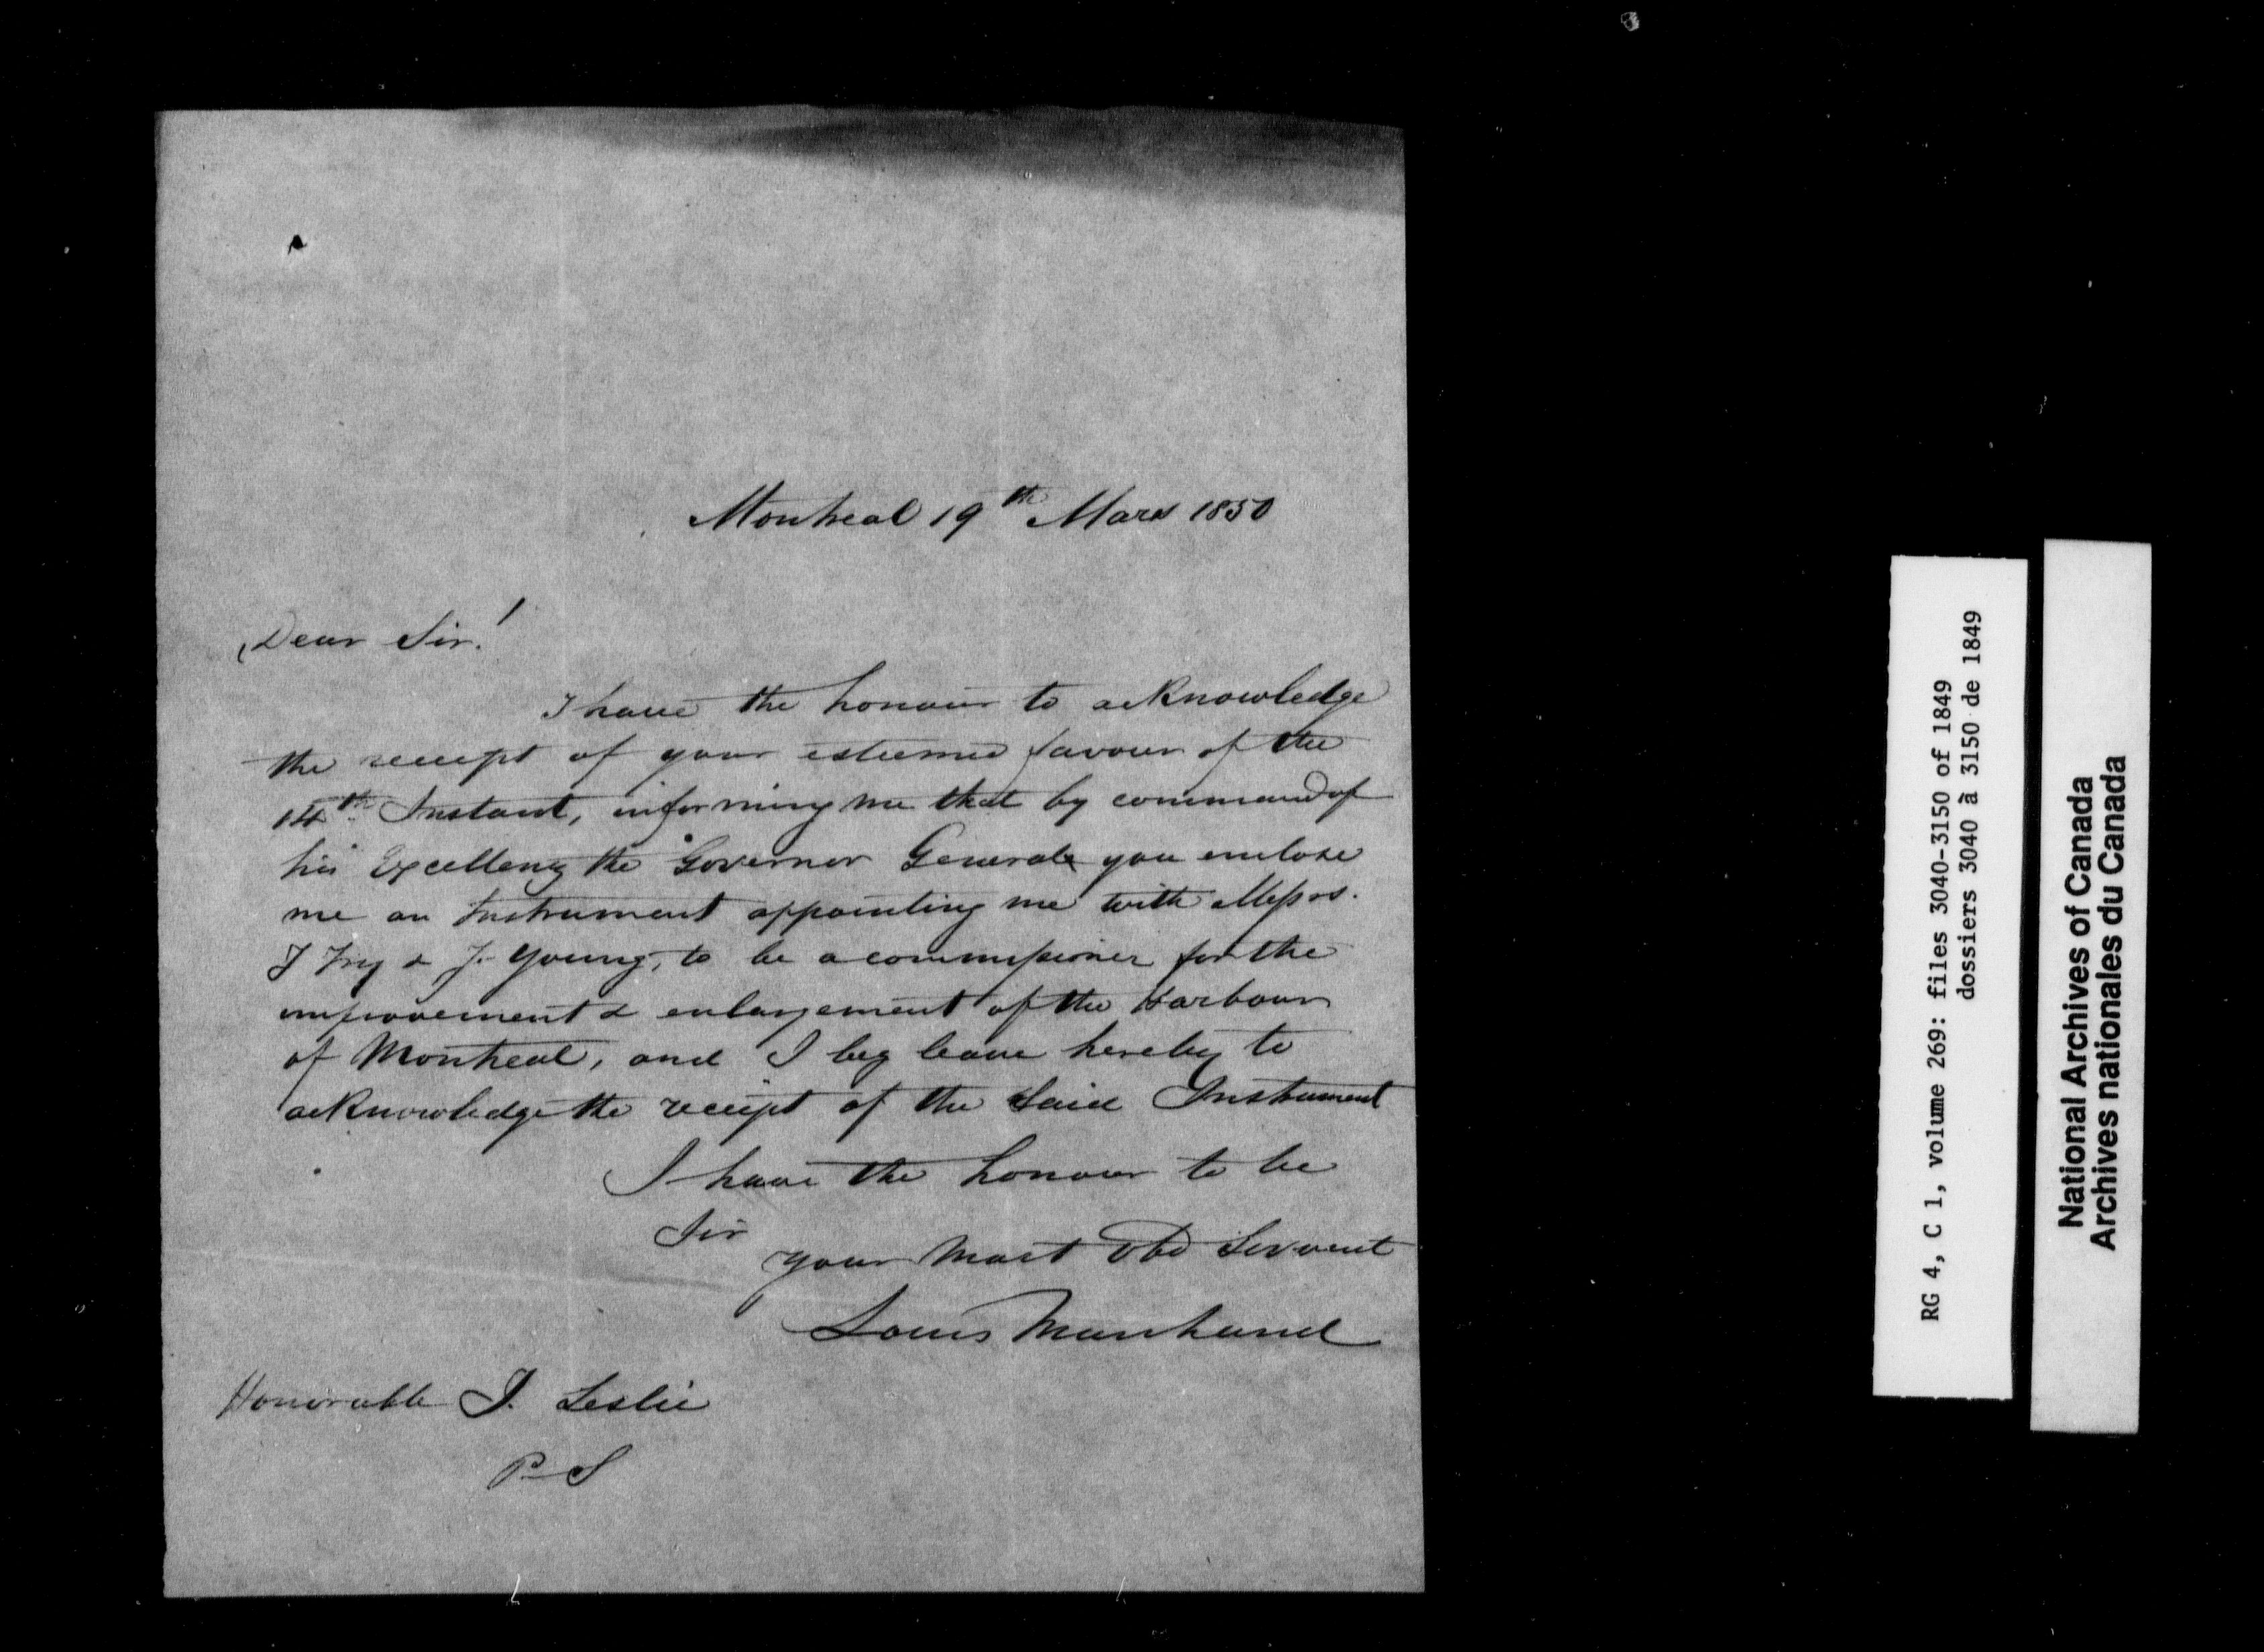 Montreal 19th Mars 1850
Dear Sir!
I have the honour to acknowledge
the receipt of your esteemed favour of the
14th Instant, informing me that by command of
his Excellency the Governor General you enclose
me an Instrument appointing me with Messrs.
J Fry & J. Young, to be a commissioner for the
improvement & enlargement of the Harbour
of Montreal, and I beg leave hereby to
acknowledge the receipt of the said Instrument
I have the honour to be
Sir
your most Obd Servant
Louis Marchand
Honorable J. Leslie
P S
RG 4, C 1, volume 269: files 3040-3150 of 1849
dossiers 3040 à 3150 de 1849
National Archives of Canada
Archives nationales du Canada